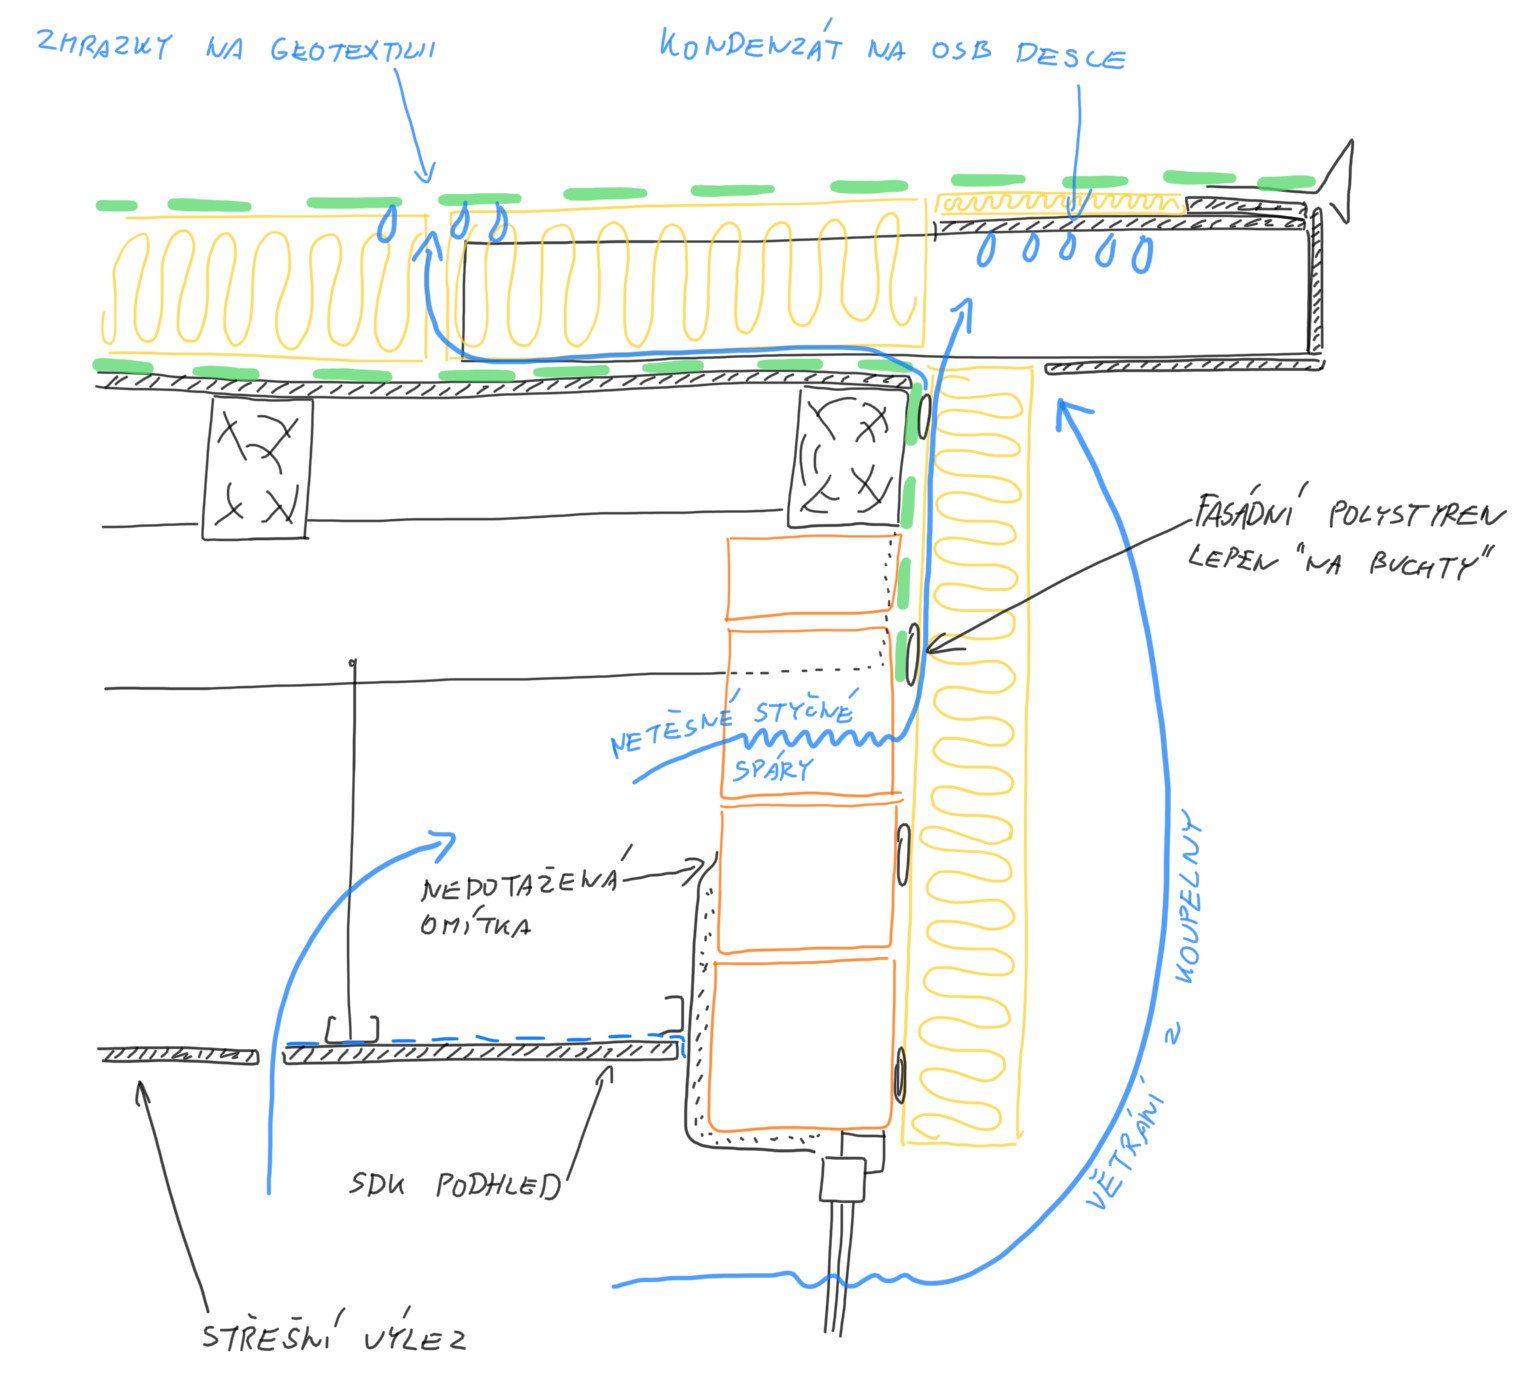 ZMRAZKY NA GEOTEXTILII
KONDENZÁT NA OSB DESCE
FASÁDNÍ POLYSTYREN
LEPEN "NA BUCHTY"
NETĚSNÉ STYČNÉ
SPÁRY
NEDOTAŽENÁ
OMÍTKA
VĚTRÁNÍ Z KOUPELNY
SDK PODHLED
STŘEŠNÍ VÝLEZ